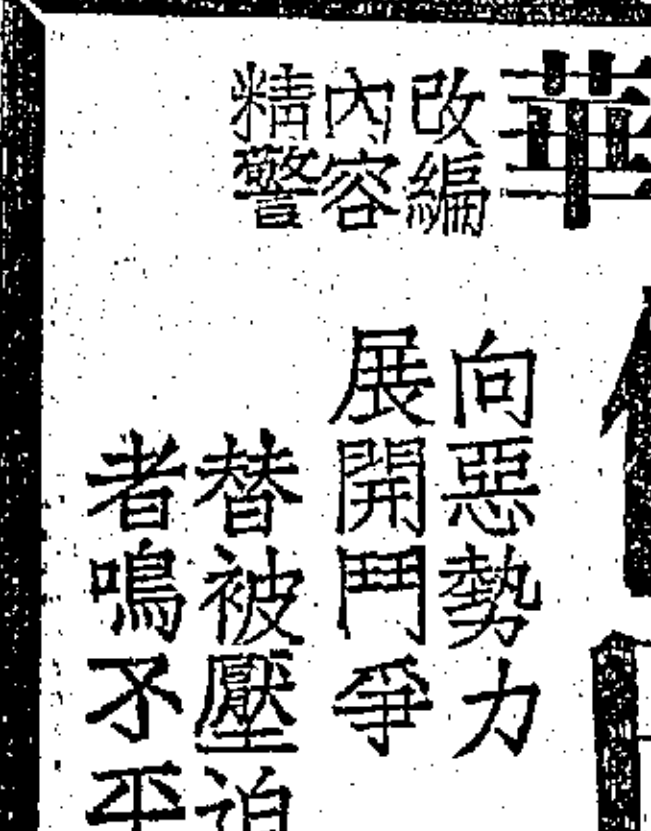 華
改編
內容
精警
向惡勢力
展開鬥爭
替被壓迫
者鳴不平